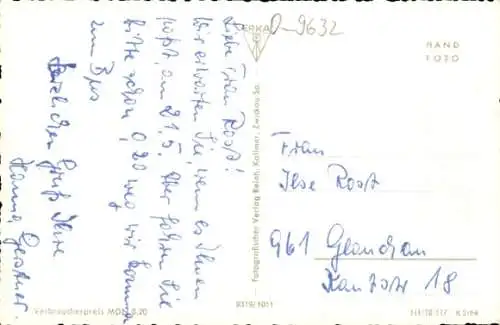 ERKA
D-9632
HAND
1020
Liebe Frau Rost!
Wir erwarten Sie, wenn es Ihnen
paßt, am 21.5. Aber fahren Sie
bitte schon 0,20 weg wir kommen
zum Bus
Herzlichen Gruß Ihre
Hanna Gerstner.
Fotografischer Verlag Reinh. Kallmer, Zwickau Sa.
Frau
Ilse Rost
961 Glauchau
Kantstr 18
Verbraucherpreis MDN 0,20
8319/1011